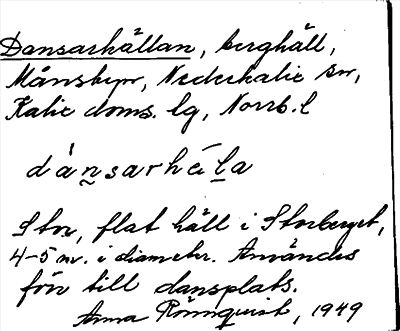 Dansarhällan, berghäll,
Månsbyn, Nederkalix sn,
Kalix doms. lg, Norrb. l
dánsarhä́la
Stor, flat häll i Storberget,
4-5 m. i diameter. Användes
förr till dansplats.
Anna Rönnquist, 1949